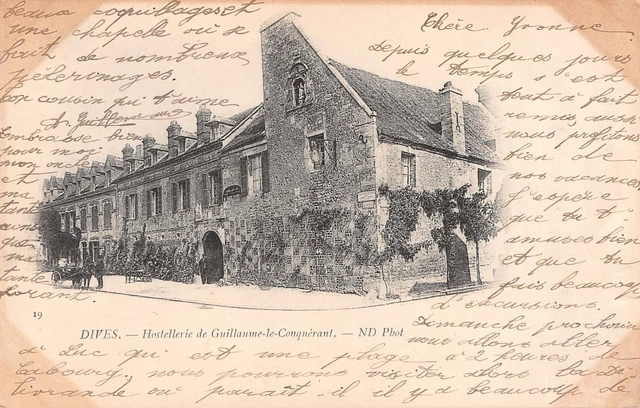 Chère Yvonne
Depuis quelques jours
le temps s'est
tout à fait
remis aussi
nous profitons
bien de
nos vacances
J'espère
que tu t'
amuses bien
et que tu
fais beaucoup
d'excursions.
Dimanche prochain
nous allons aller
à Luc qui est une plage à 2 heures de
Cabourg, nous pourrons visiter alors la Dé-
livrande où paraît il il y a beaucoup de
beaux coquillages et
une chapelle où se
fait de nombreux
pèlerinages.
Ton cousin qui t'aime
A. Guillemaut
Embrasse bien
pour moi
mon oncle
ma
tante
19
DIVES. — Hostellerie de Guillaume-le-Conquérant. — ND Phot